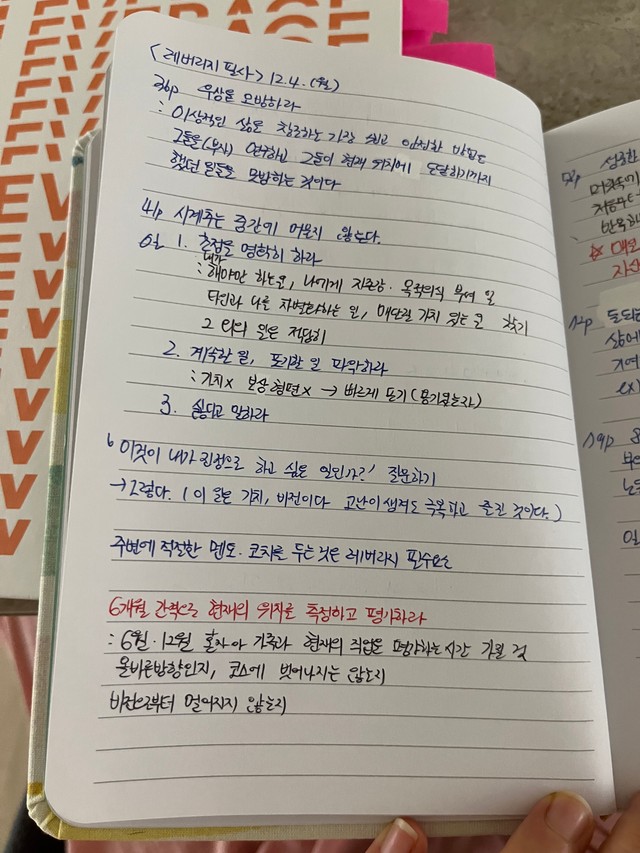 EVERAGE
<레버리지 필사> 12.4.(월)
36p 우상을 모방하라
: 이상적인 삶을 창조하는 가장 쉽고 안전한 방법은
그들을(부자) 연구하고 그들이 현재 위치에 도달하기까지
했던 일들을 모방하는 것이다
41p 시계추는 중간에 머물지 않는다.
일 1. 초점을 명확히 하라
내가
: 해야만 하는 일, 나에게 자존감·목적의식 부여 일
타인과 나를 차별화하는 일, 매만질 가치 있는 일 찾기
그 외의 일은 적당히
2. 계속할 일, 포기할 일 파악하라
: 가치x 보상 형편x → 빠르게 포기(용기있는자)
3. 싫다고 말하라
이것이 내가 진정으로 하고 싶은 일인가?' 질문하기
→ 그렇다. (이 일은 가치, 비전이다 고난이 생겨도 극복하고 즐길 것이다.)
주변에 적절한 멘토·코치를 두는 것은 레버리지 필수요소
6개월 간격으로 현재의 위치를 측정하고 평가하라
: 6월·12월 혼자아 가족과 현재의 직업을 평가하는 시간 가질 것
올바른방향인지, 코스에 벗어나지는 않는지
비전으로부터 멀어지지 않는지